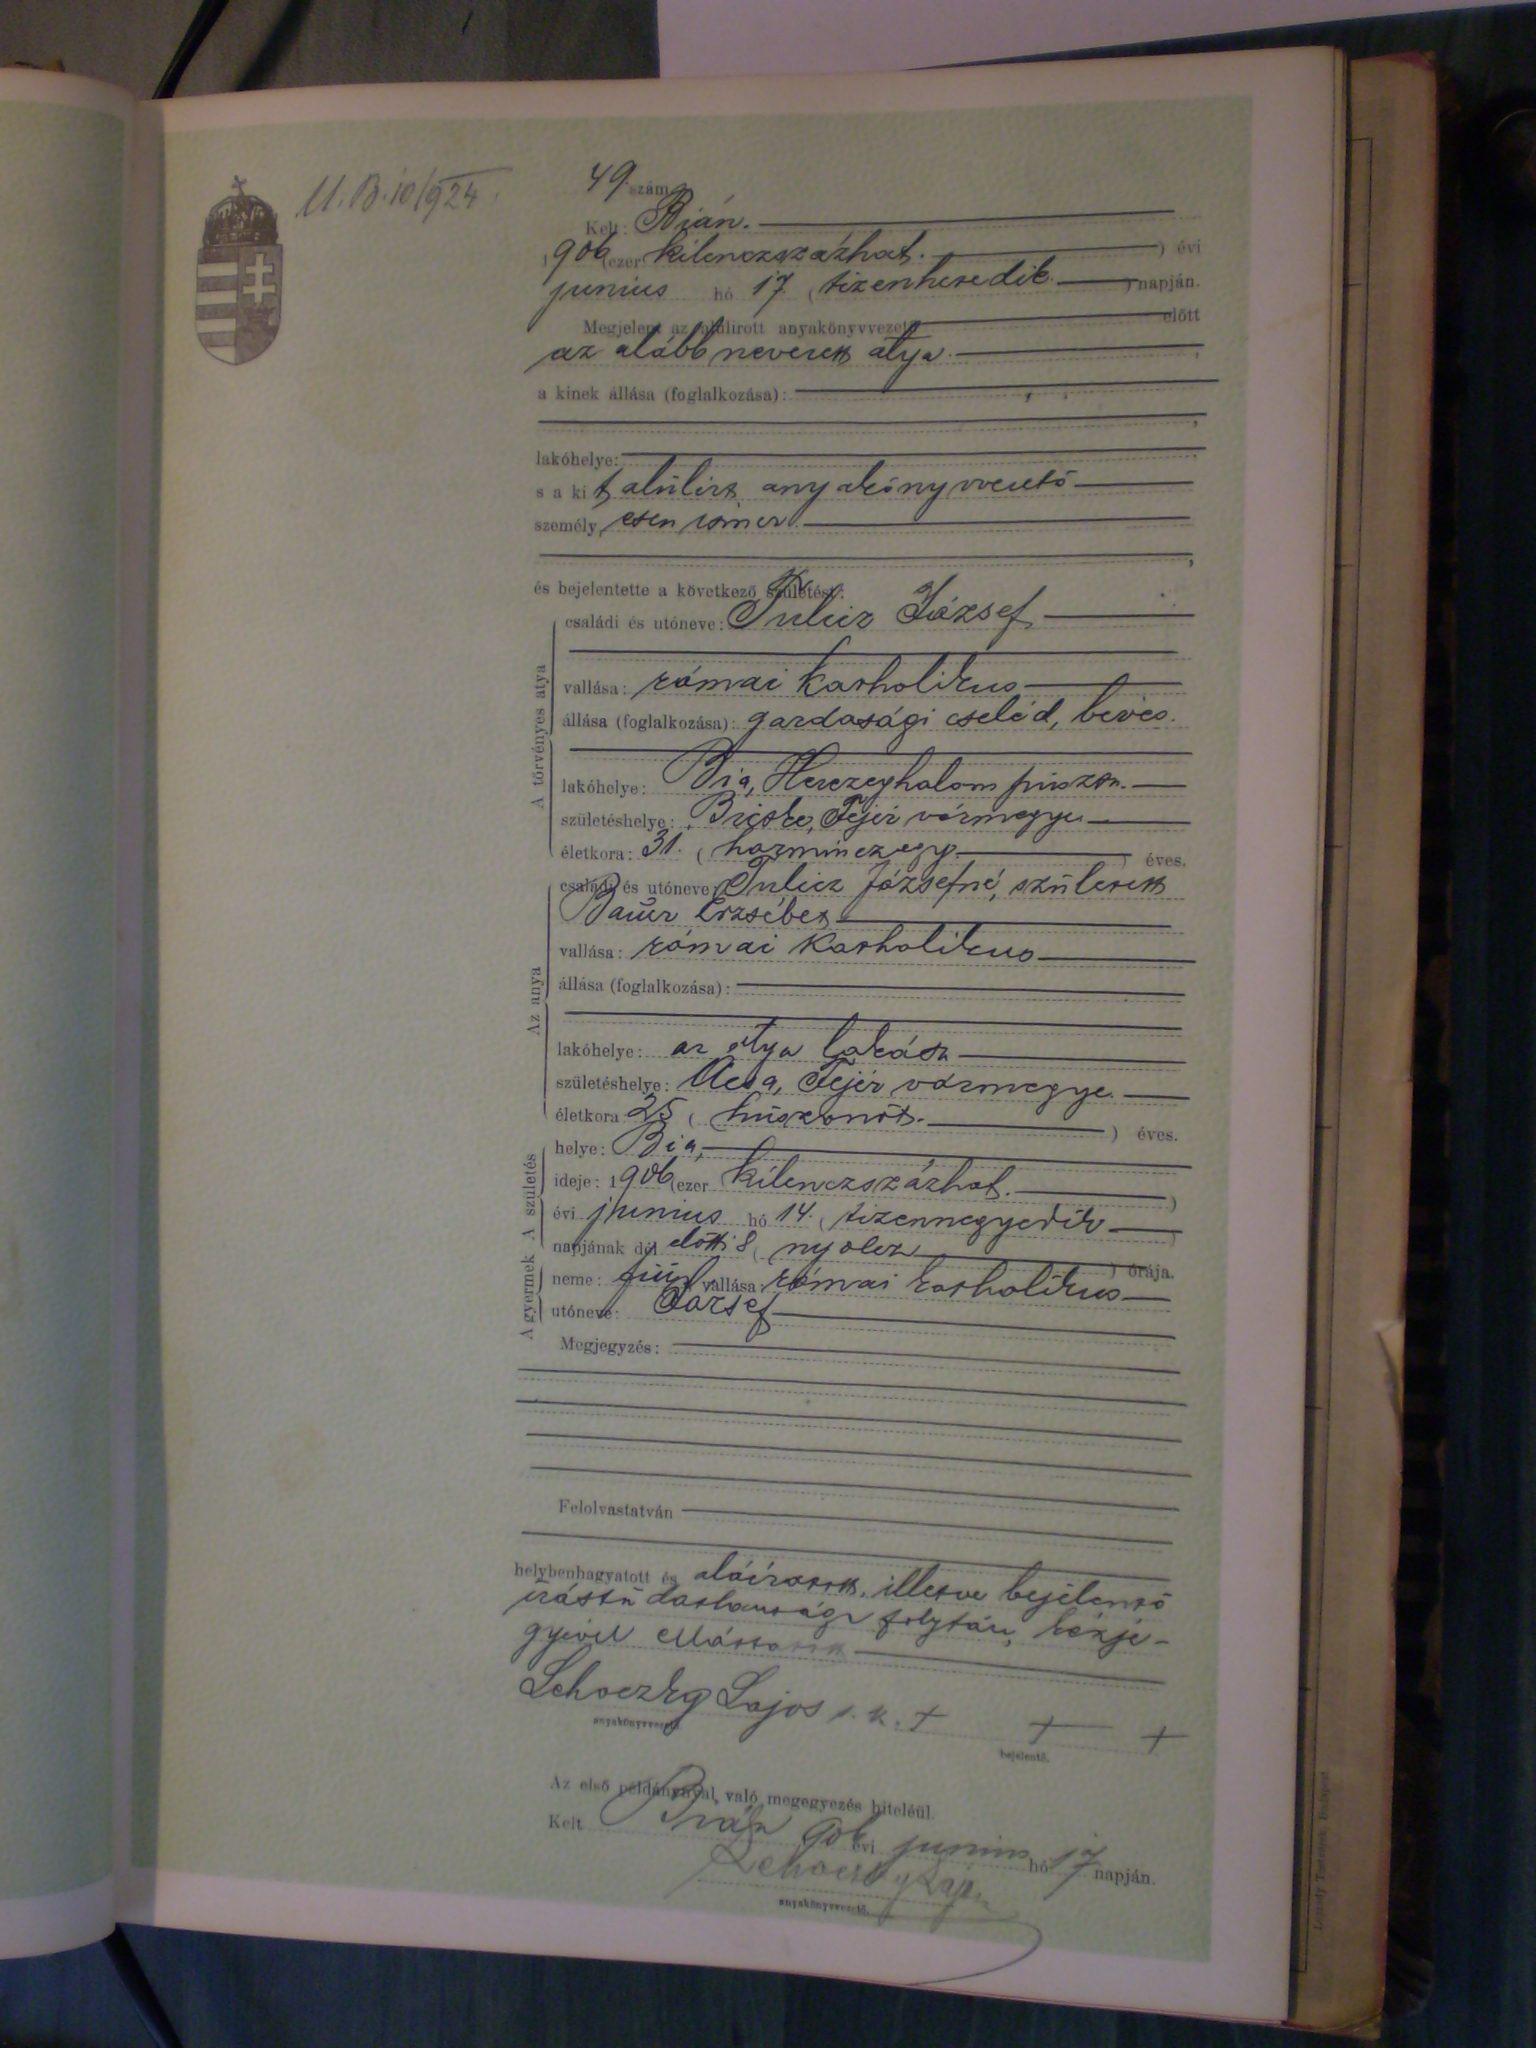 M. B. 10/924.
49. szám
Kelt: Bián.
1906 (ezer kilenczszázhat. ) évi
junius hó 17 (tizenhetedik ) napján.
Megjelent az alulirott anyakönyvvezető előtt
az alább nevezett atya
a kinek állása (foglalkozása):
lakóhelye:
s a kit alulirt anyakönyvvezető
személyesen ismer
és bejelentette a következő születést:
A törvényes atya
családi és utóneve: Tulicz József
vallása: római katholikus
állása (foglalkozása): gazdasági cseléd, béres.
lakóhelye: Bia, Herczeghalom puszta.
születéshelye: Bicske, Fejér vármegye
életkora: 31. (harminczegy ) éves.
Az anya
családi és utóneve: Tulicz Józsefné, született
Bauer Erzsébet
vallása: római katholikus
állása (foglalkozása):
lakóhelye: az atya lakása
születéshelye: Acsa, Fejér vármegye.
életkora 25 (huszonöt. ) éves.
A gyermek A születés
helye: Bia,
ideje: 1906 (ezer kilenczszázhat. )
évi junius hó 14. (tizennegyedik )
napjának dél előtti 8 (nyolcz ) órája.
neme: fiú, vallása: római katholikus
utóneve: József
Megjegyzés:
Felolvastatván
helybenhagyatott és aláíratott, illetve bejelentő
irástudatlansága folytán, kézje-
gyével elláttatott
Lehoczky Lajos s. k. + + +
anyakönyvvezető. bejelentő.
Az első példánynyal való megegyezés hiteléül.
Kelt Bián 906 évi junius hó 17 napján.
Lehoczky Lajos
anyakönyvvezető.